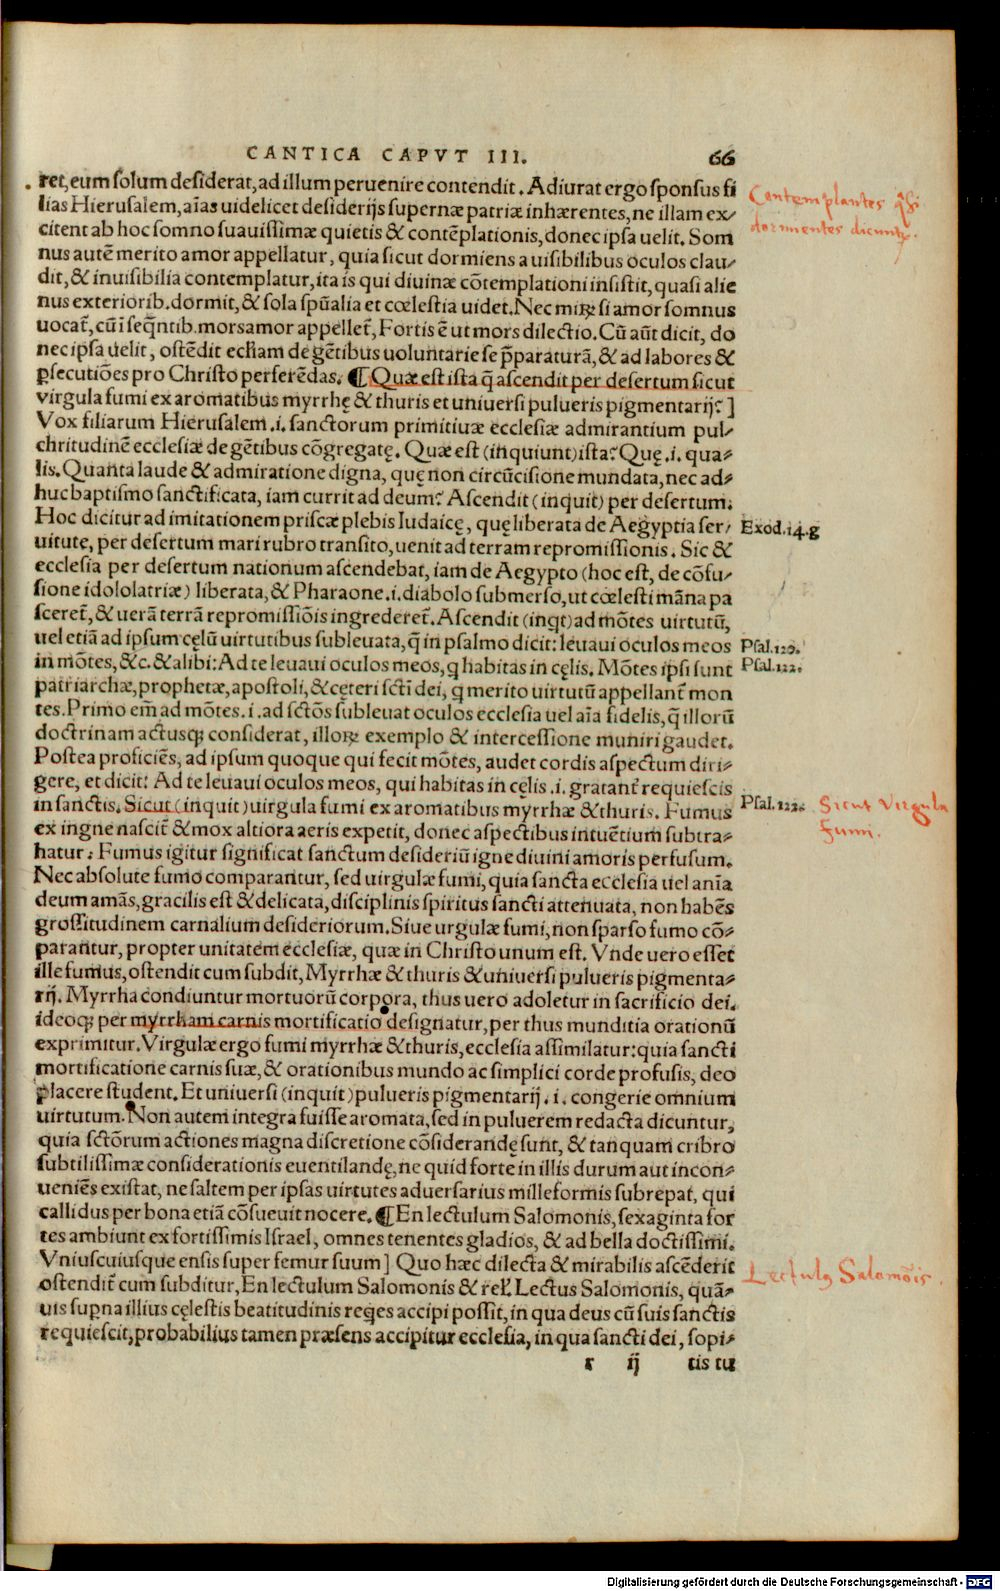 CANTICA CAPVT III. 66
ret, eum solum desiderat, ad illum peruenire contendit. Adiurat ergo sponsus fi
lias Hierusalem, aīas uidelicet desiderijs supernæ patriæ inhærentes, ne illam ex/
citent ab hoc somno suauissimæ quietis & contēplationis, donec ipsa uelit. Som
nus autē merito amor appellatur, quia sicut dormiens a uisibilibus oculos clau/
dit, & inuisibilia contemplatur, ita is qui diuinæ cōtemplationi insistit, quasi alie
nus exteriorib. dormit, & sola spūalia et cœlestia uidet. Nec miꝝ si amor somnus
uocat̄, cū ī seq̄ntib. mors amor appellet̄, Fortis ē ut mors dilectio. Cū aūt dicit, do
nec ipsa uelit, ostēdit etiam de gētibus uoluntarie se p̄paraturā, & ad labores &
ꝑsecutiōes pro Christo perferēdas. ¶ Quæ est ista q̄ ascendit per desertum sicut
virgula fumi ex aromatibus myrrhę & thuris et uniuersi pulueris pigmentarij?]
Vox filiarum Hierusalem .i. sanctorum primitiuæ ecclesiæ admirantium pul/
chritudinē ecclesiæ de gētibus cōgregatę. Quæ est (inquiunt) ista? Quę .i. qua=
lis. Quanta laude & admiratione digna, quę non circūcisione mundata, nec ad=
huc baptismo sanctificata, iam currit ad deum? Ascendit (inquit) per desertum.
Hoc dicitur ad imitationem priscæ plebis Iudaicę, quę liberata de Aegyptia ser/
uitute, per desertum mari rubro transito, uenit ad terram repromissionis. Sic &
ecclesia per desertum nationum ascendebat, iam de Aegypto (hoc est, de cōfu/
sione idololatriæ) liberata, & Pharaone .i. diabolo submerso, ut cœlesti māna pa
sceret̄, & uerā terrā repromissiōis ingrederet̄. Ascendit (inqt) ad mōtes uirtutū,
uel etiā ad ipsum cęlū uirtutibus subleuata, q̄ in psalmo dicit: leuaui oculos meos
in mōtes, &c. & alibi: Ad te leuaui oculos meos, q habitas in cęlis. Mōtes ipsi sunt
patriarchæ, prophetæ, apostoli, & cęteri scti dei, q merito uirtutū appellant̄ mon
tes. Primo em̄ ad mōtes .i. ad sctōs subleuat oculos ecclesia uel aīa fidelis, q̄ illorū
doctrinam actusqꝫ considerat, illoꝝ exemplo & intercessione muniri gaudet.
Postea proficiēs, ad ipsum quoque qui fecit mōtes, audet cordis aspectum diri=
gere, et dicit: Ad te leuaui oculos meos, qui habitas in cęlis .i. gratant̄ requiescis
in sanctis. Sicut (inquit) uirgula fumi ex aromatibus myrrhæ & thuris. Fumus
ex ingne nascit̄ & mox altiora aeris expetit, donec aspectibus intuētium subtra=
hatur. Fumus igitur significat sanctum desideriū igne diuini amoris perfusum.
Nec absolute fumo comparantur, sed uirgulæ fumi, quia sancta ecclesia uel anīa
deum amās, gracilis est & delicata, disciplinis spiritus sancti attenuata, non habēs
grossitudinem carnalium desideriorum. Siue urgulæ fumi, non sparso fumo cō=
parantur, propter unitatem ecclesiæ, quæ in Christo unum est. Vnde uero esset
ille fumus, ostendit cum subdit, Myrrhæ & thuris & uniuersi pulueris pigmenta=
rij. Myrrha condiuntur mortuorū corpora, thus uero adoletur in sacrificio dei.
ideoqꝫ per myrrham carnis mortificatio designatur, per thus munditia orationū
exprimitur. Virgulæ ergo fumi myrrhæ & thuris, ecclesia assimilatur: quia sancti
mortificatione carnis suæ, & orationibus mundo ac simplici corde profusis, deo
placere student. Et uniuersi (inquit) pulueris pigmentarij .i. congerie omnium
uirtutum. Non autem integra fuisse aromata, sed in puluerem redacta dicuntur,
quia sctōrum actiones magna discretione cōsiderandę sunt, & tanquam cribro
subtilissimæ considerationis euentilandę, ne quid forte in illis durum aut incon=
ueniēs existat, ne saltem per ipsas uirtutes aduersarius milleformis subrepat, qui
callidus per bona etiā cōsueuit nocere. ¶ En lectulum Salomonis, sexaginta for
tes ambiunt ex fortissimis Israel, omnes tenentes gladios, & ad bella doctissimi.
Vniuscuiusque ensis super femur suum] Quo hæc dilecta & mirabilis ascēderit
ostendit̄ cum subditur, En lectulum Salomonis & rel. Lectus Salomonis, quā=
uis suꝑna illius cęlestis beatitudinis reges accipi possit, in qua deus cū suis sanctis
requiescit, probabilius tamen præsens accipitur ecclesia, in qua sancti dei, sopi=
r ij tis tu
Contemplantes q̄si
dormientes dicunt̄.
Exod.14.g
Psal.120.
Psal.122.
Psal.122.
Sicut virgula
fumi.
Lectulus Salomōis.
Digitalisierung gefördert durch die Deutsche Forschungsgemeinschaft - DFG